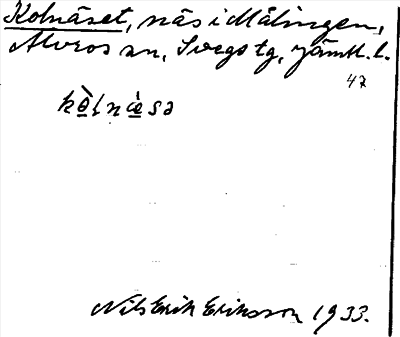 Kolnäset, näs i Målingen,
Älvros sn, Svegs tg, Jämtl. l.
47
kò̲lnæ̲̀sə
Nils Erik Eriksson 1933.